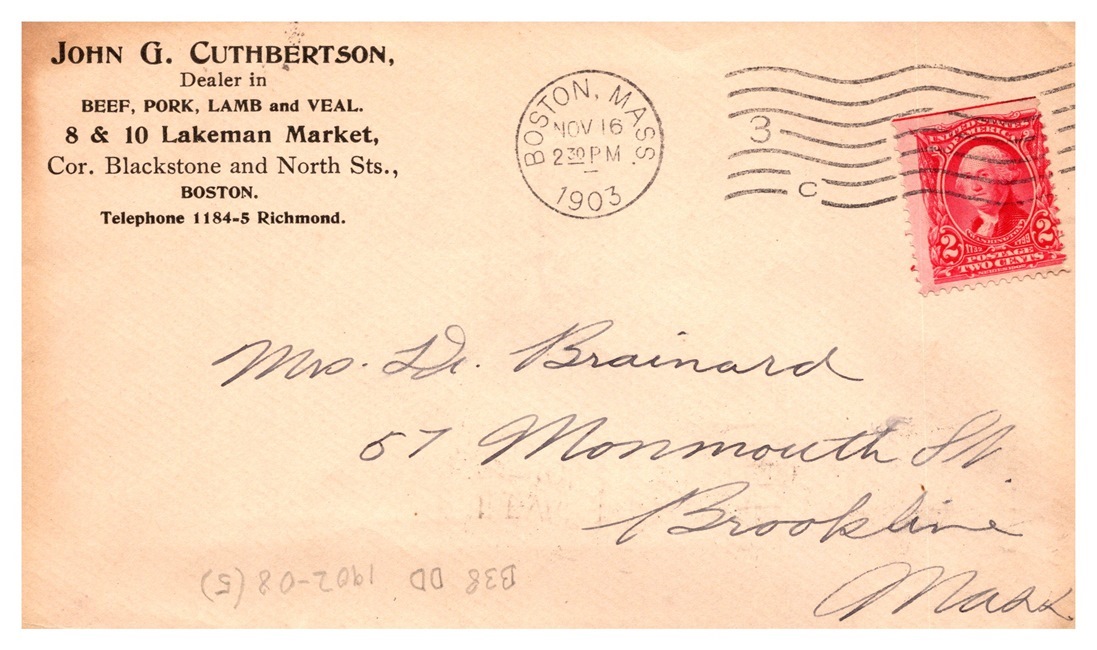 JOHN G. CUTHBERTSON,
Dealer in
BEEF, PORK, LAMB and VEAL.
8 & 10 Lakeman Market,
Cor. Blackstone and North Sts.,
BOSTON.
Telephone 1184-5 Richmond.
BOSTON, MASS.
NOV 16
2 30 PM
1903
3
C
UNITED STATES
OF AMERICA
WASHINGTON
1732 1799
2 2
POSTAGE
TWO CENTS
SERIES 1902
Mrs. Dr. Brainard
57 Monmouth St
Brookline
Mass.
B38 DD 1902-08 (5)